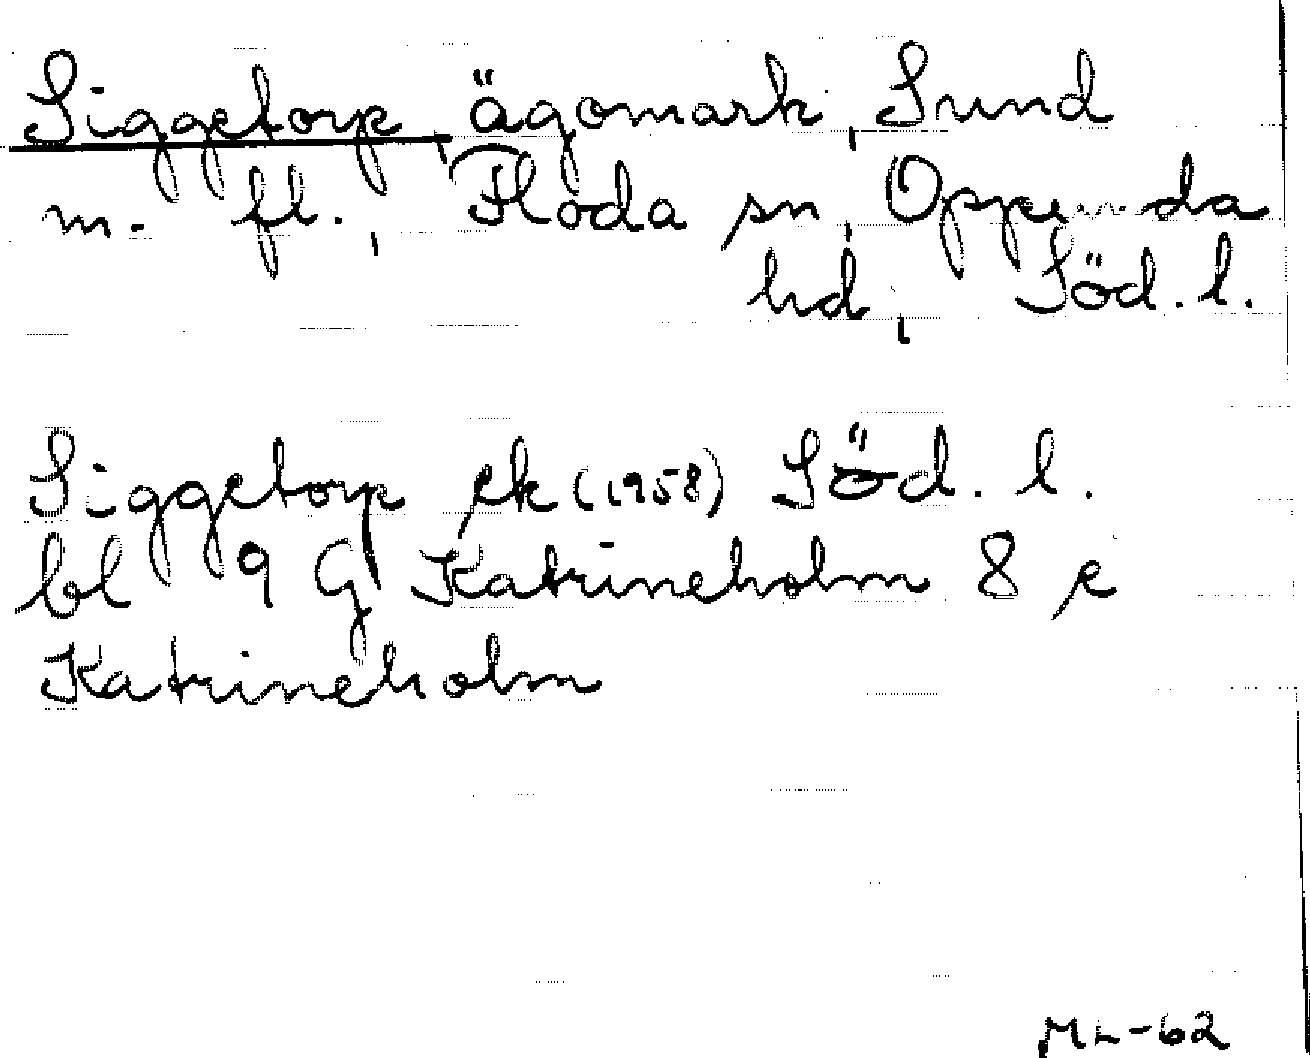 Siggetorp, ägomark, Sund
m. fl., Floda sn, Oppunda
hd, Söd. l.
Siggetorp ek (1958) Söd. l.
bl 9 G Katrineholm 8 e
Katrineholm
ML-62